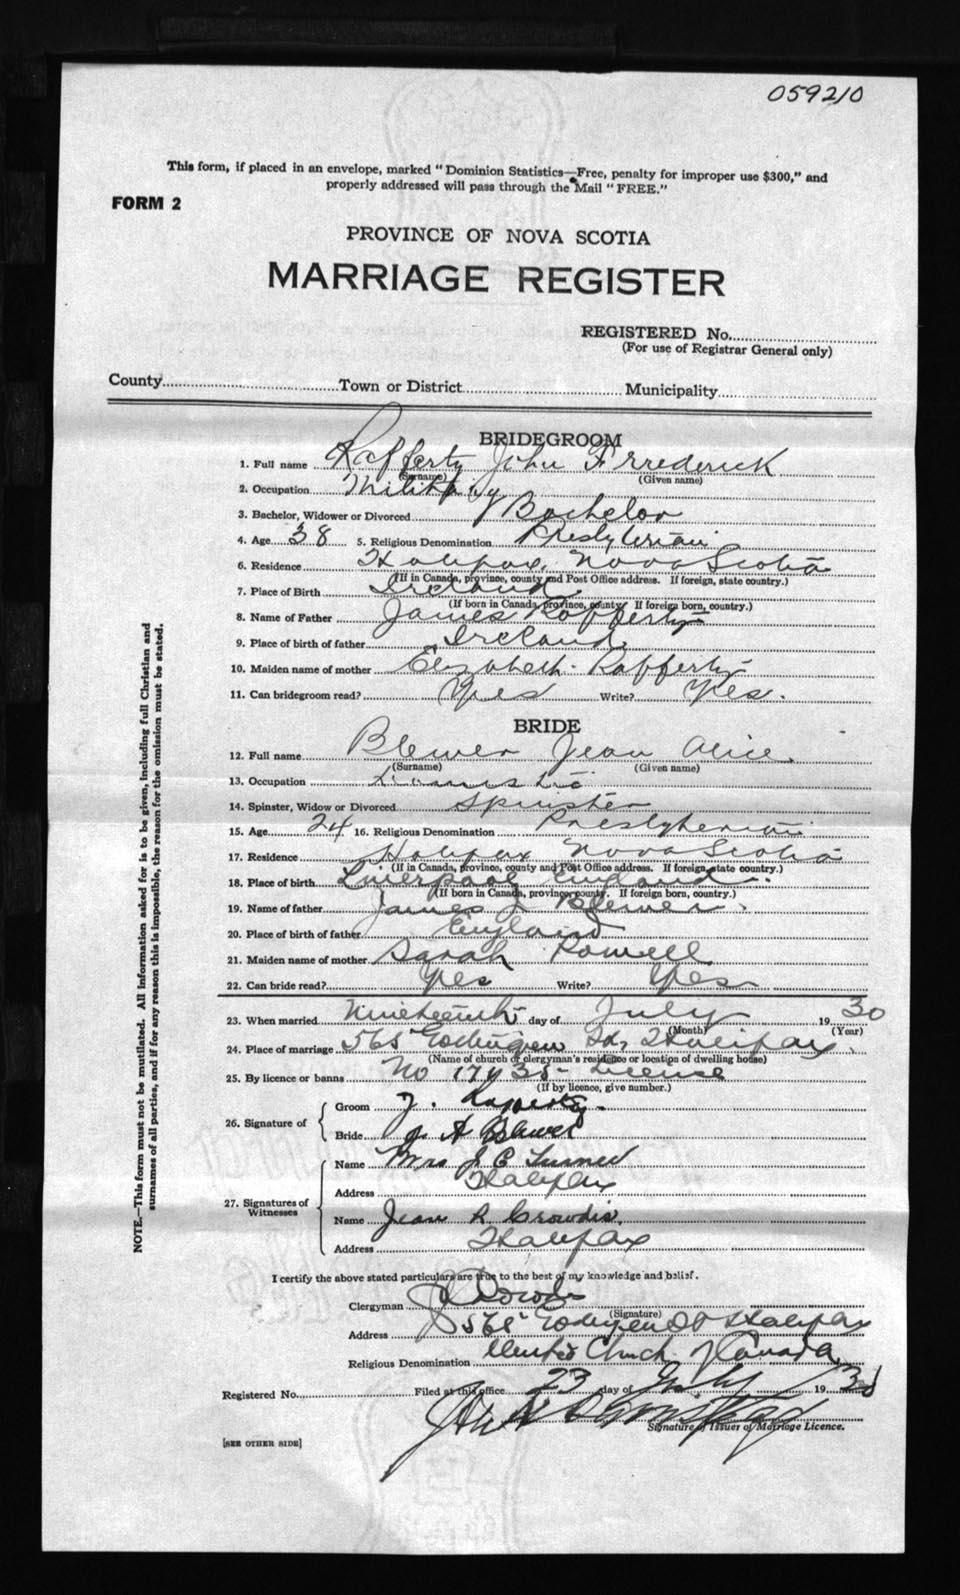 059210
This form, if placed in an envelope, marked "Dominion Statistics—Free, penalty for improper use $300," and
properly addressed will pass through the Mail "FREE."
FORM 2
PROVINCE OF NOVA SCOTIA
MARRIAGE REGISTER
REGISTERED No.
(For use of Registrar General only)
County Town or District Municipality
BRIDEGROOM
1. Full name Rafferty John Frrederick
(Surname) (Given name)
2. Occupation Military
3. Bachelor, Widower or Divorced Bachelor
4. Age 38 5. Religious Denomination Presbyterian
6. Residence Halifax, Nova Scotia
(If in Canada, province, county and Post Office address. If foreign, state country.)
7. Place of Birth Ireland
(If born in Canada, province, county. If foreign born, country.)
8. Name of Father James Rafferty
9. Place of birth of father Ireland
10. Maiden name of mother Elizabeth Rafferty
11. Can bridegroom read? Yes Write? Yes.
BRIDE
12. Full name Blewer Jean Alice.
(Surname) (Given name)
13. Occupation Domestic
14. Spinster, Widow or Divorced Spinster
15. Age 24 16. Religious Denomination Presbyterian
17. Residence Halifax Nova Scotia
(If in Canada, province, county and Post Office address. If foreign, state country.)
18. Place of birth Liverpool England.
(If born in Canada, province, county. If foreign born, country.)
19. Name of father James J Blewer.
20. Place of birth of father England
21. Maiden name of mother Sarah Powell
22. Can bride read? Yes Write? Yes
23. When married Nineteenth day of July 1930
(Month) (Year)
24. Place of marriage 565 Halifax.
(Name of church or clergyman's residence or location of dwelling house)
25. By licence or banns No 17435 - License
(If by licence, give number.)
26. Signature of Groom J. Rafferty.
Bride J A Blewer
27. Signatures of Witnesses Name Mrs J C Turner
Address Halifax
Name Jean R Crowdis.
Address Halifax
I certify the above stated particulars are true to the best of my knowledge and belief.
Clergyman Crowdis
(Signature)
Address 565 St Halifax
Religious Denomination United Church of Canada
Registered No. Filed at this office 23 day of July 1930
Signature of Issuer of Marriage Licence.
[SEE OTHER SIDE]
NOTE.—This form must not be mutilated. All information asked for is to be given, including full Christian and
surnames of all parties, and if for any reason this is impossible, the reason for the omission must be stated.